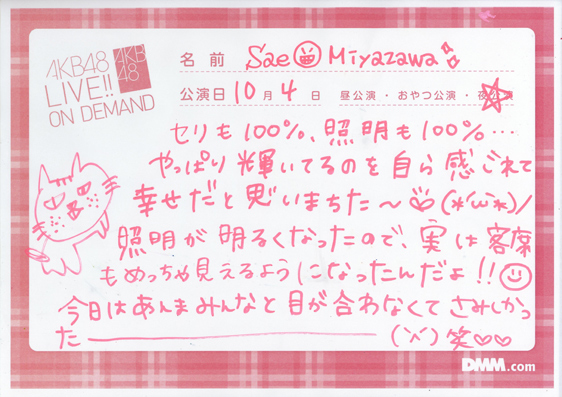 AKB48
LIVE!!
ON DEMAND
AKB
48
名前 Sae Miyazawa
公演日 10月4日 昼公演・おやつ公演・夜公演
セリも100%、照明も100%…
やっぱり輝いてるのを自ら感じれて
幸せだと思いまちた〜(*'ω'*)/
照明が明るくなったので、実は客席
もめっちゃ見えるようになったんだよ!!
今日はあんまみんなと目が合わなくてさみしかっ
た――――― 笑♡♡
DMM.com